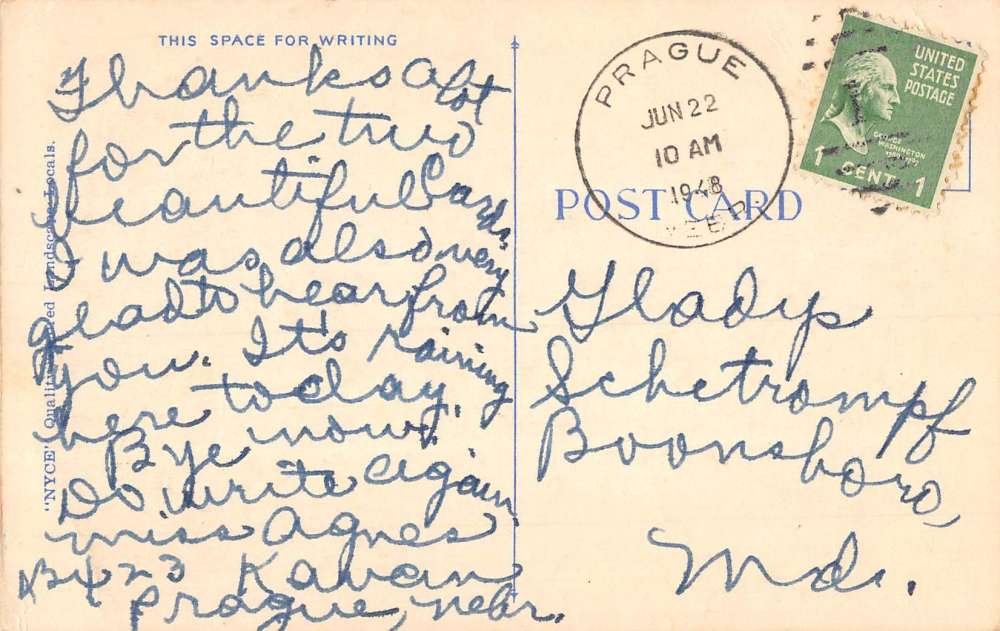 THIS SPACE FOR WRITING
Thanks a lot
for the two
beautiful Cards.
I was also very
glad to hear from
you. It's raining
here today.
Bye now.
Do write again
miss Agnes
Bx 23 Kavan
Prague, Nebr.
"NYCE" Quality Landscape Locals.
PRAGUE
JUN 22
10 AM
1948
NEBR.
UNITED
STATES
POSTAGE
GEORGE
WASHINGTON
1 CENT 1
POST CARD
Gladys
Schetrompf
Boonsboro,
Md.